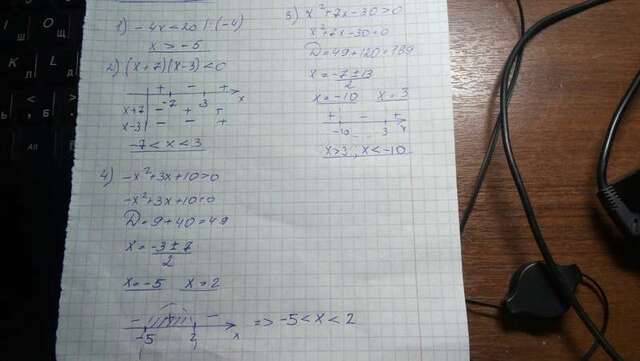 1) -4x<20 |:(-4)
x > -5
2) (x+7)(x-3)<0
+ - +
-7 3 x
x+7 - + +
x-3 - - +
-7 < x < 3
3) x²+7x-30>0
x²+7x-30=0
D=49+120=169
x = -7±13
2
x=-10 x=3
+ - +
-10 3 x
x>3, x<-10
4) -x²+3x+10>0
-x²+3x+10=0
D=9+40=49
x = -3±7
2
x=-5 x=2
- + -
-5 2 x
=> -5 < x < 2